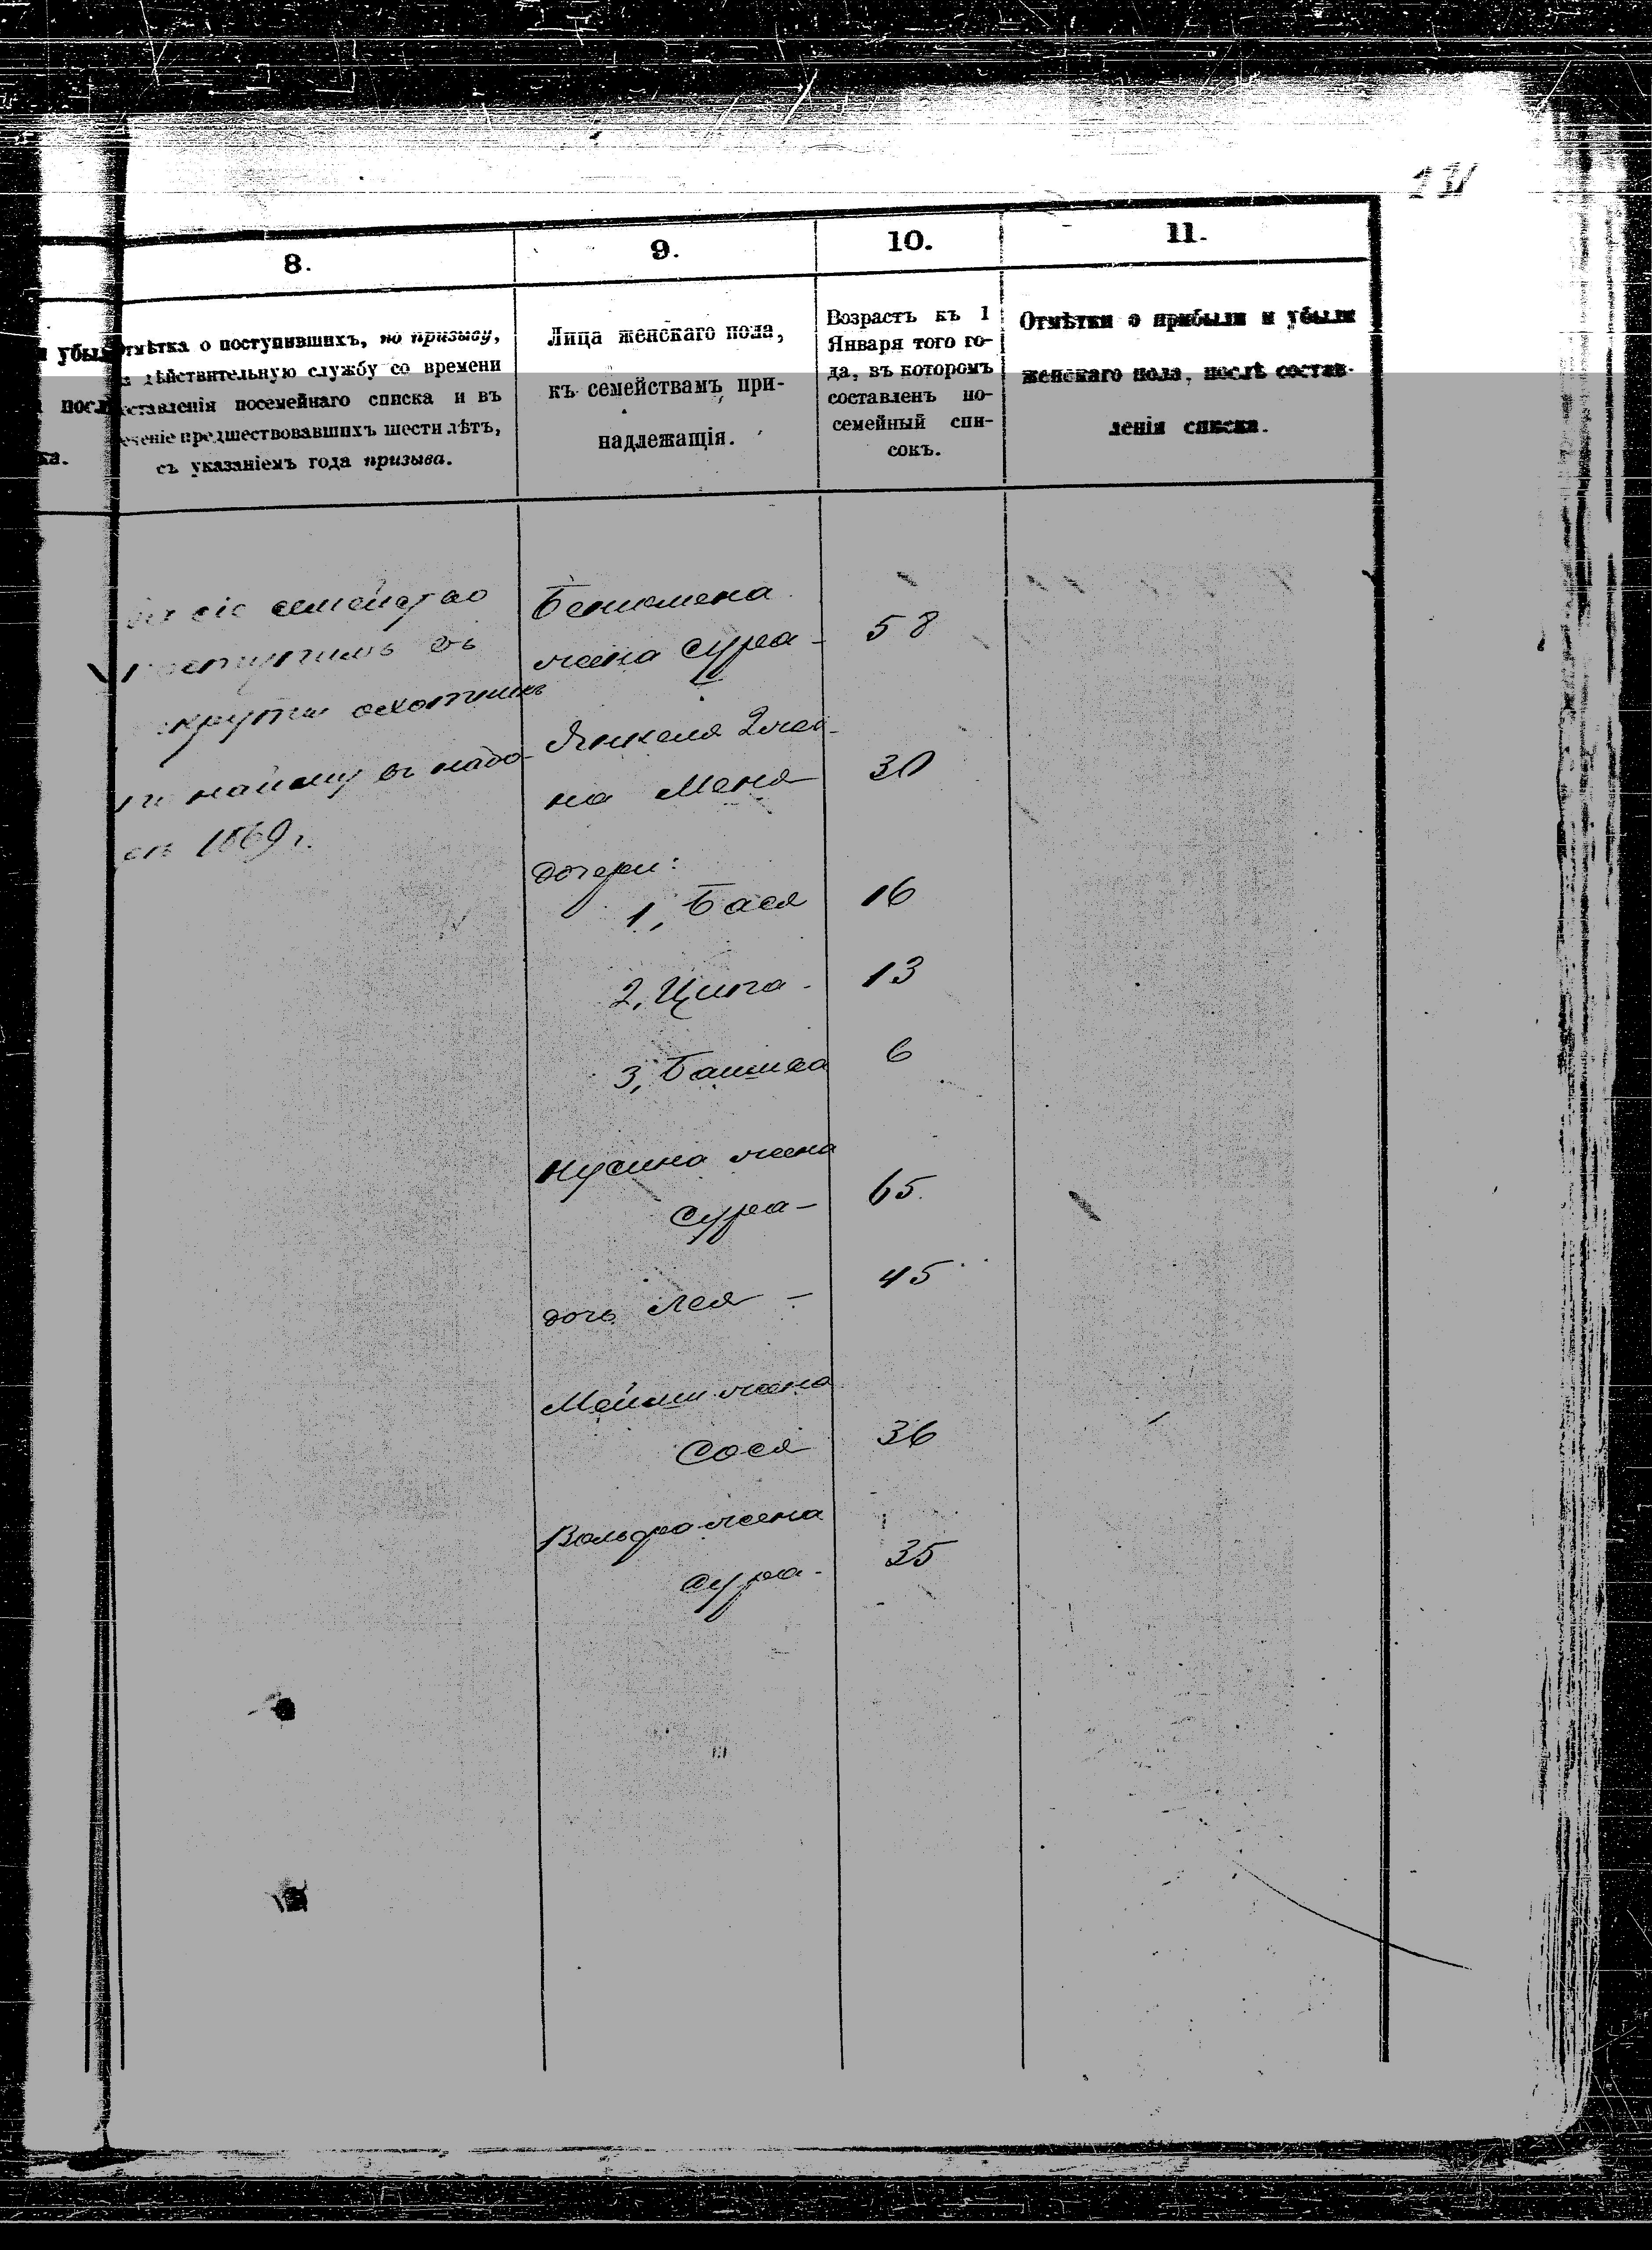 8.
9.
10.
11.
убыл
посл
ка.
Отмѣтка о поступившихъ, по призыву,
дѣйствительную службу со времени
составленія посемейнаго списка и въ
теченіе предшествовавшихъ шести лѣтъ,
съ указаніемъ года призыва.
Лица женскаго пола,
къ семействамъ при-
надлежащія.
Возрастъ къ 1
Января того го-
да, въ которомъ
составленъ по-
семейный спи-
сокъ.
Отмѣтки о прибыли и убыли
женскаго пола, послѣ состав-
ленія списка.
сіе семейство
поступилъ въ
рекруты охотникъ
по найму въ набо-
1869 г.
Бениомена
жена Сура - 58
Янкеля 2 же-
на Меня 30
дочери:
1, Бася 16
2, Ципа - 13
3, Башева 6
Нусина жена
Сура - 65
дочь Лея - 45
Мейши жена
Сося 36
Вольфа жена
Сура - 35